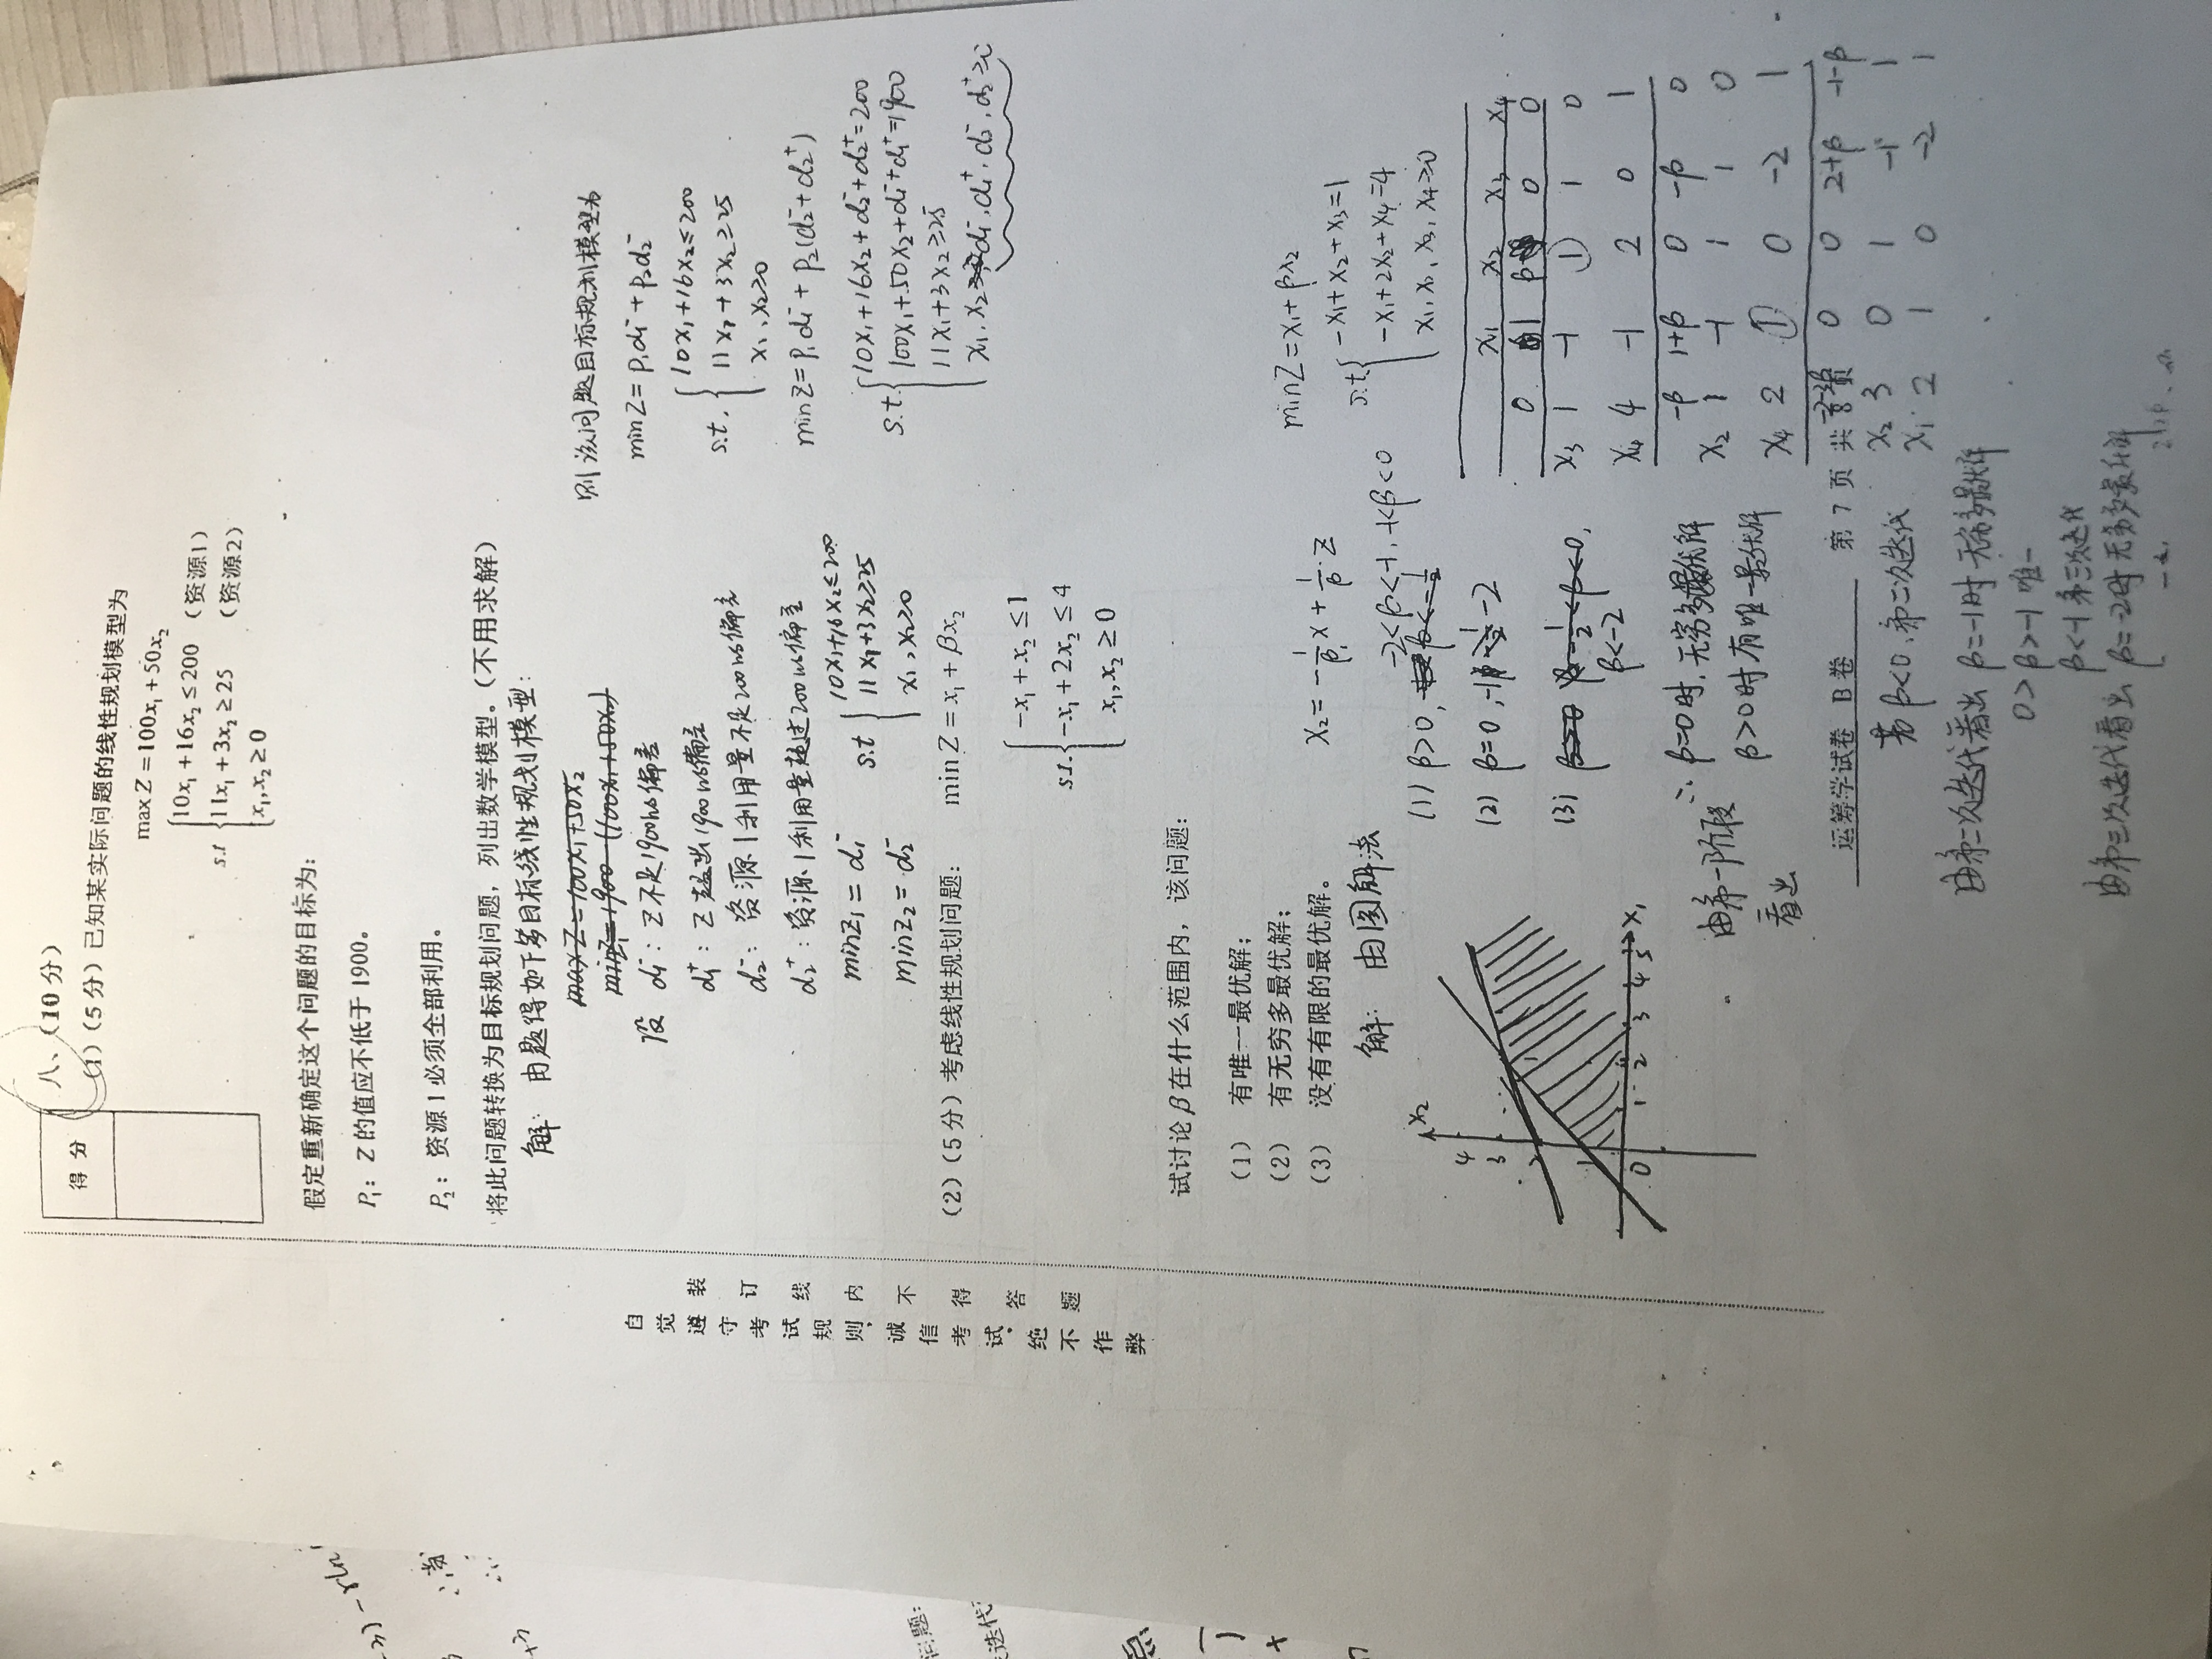 得 分
八、（10 分）
（1）（5 分）已知某实际问题的线性规划模型为
max Z = 100x₁ + 50x₂
s.t
10x₁ + 16x₂ ≤ 200 （资源1）
11x₁ + 3x₂ ≥ 25 （资源2）
x₁, x₂ ≥ 0
假定重新确定这个问题的目标为：
P₁：Z 的值应不低于 1900。
P₂：资源 1 必须全部利用。
将此问题转换为目标规划问题，列出数学模型。（不用求解）
解：由题得如下多目标线性规划模型：
max Z = 100x₁+50x₂
minZ₁ = 1900 - (100x₁+50x₂)
设 d₁⁻：Z不足1900的偏差
d₁⁺：Z超出1900的偏差
d₂⁻：资源1利用量不足200的偏差
d₂⁺：资源1利用量超过200的偏差
minZ₁ = d₁⁻
minZ₂ = d₂⁻
s.t
10x₁+16x₂≤200
11x₁+3x₂≥25
x₁,x₂≥0
则该问题目标规划模型为
minZ = P₁d₁⁻ + P₂d₂⁻
s.t.
10x₁+16x₂≤200
11x₁+3x₂≥25
x₁,x₂≥0
minZ = P₁d₁⁻ + P₂(d₂⁻+d₂⁺)
s.t.
10x₁+16x₂+d₂⁻+d₂⁺=200
100x₁+50x₂+d₁⁻+d₁⁺=1900
11x₁+3x₂≥25
x₁,x₂ d₁⁻,d₁⁺,d₂⁻,d₂⁺≥0
（2）（5 分）考虑线性规划问题： min Z = x₁ + βx₂
s.t.
-x₁ + x₂ ≤ 1
-x₁ + 2x₂ ≤ 4
x₁, x₂ ≥ 0
试讨论 β 在什么范围内，该问题：
（1） 有唯一最优解；
（2） 有无穷多最优解；
（3） 没有有限的最优解。
解：由图解法
x₂ = -1/β x + 1/β · Z
-2<β<-1, -1<β<0
(1) β>0, β<-1/2
(2) β=0, -1, -2
(3) β<-2
x₂
4
3
2
1
0 1 2 3 4 5 x₁
minZ = x₁ + βx₂
s.t.
-x₁+x₂+x₃=1
-x₁+2x₂+x₄=4
x₁,x₂,x₃,x₄≥0
x₁ x₂ x₃ x₄
0 1 β 0 0
x₃ 1 -1 1 1 0
x₄ 4 -1 2 0 1
-β 1+β 0 -β 0
x₂ 1 -1 1 1 0
x₄ 2 1 0 -2 1
-2-3β 0 0 2+β -1-β
x₂ 3 0 1 -1 1
x₁ 2 1 0 -2 1
由第一阶段
看出
∴ β=0时，无穷多最优解
β>0时有唯一最优解
若β<0，第二次迭代
由第二次迭代看出 β=-1时 无穷多最优解
0>β>-1 唯一
β<-1 第三次迭代
由第三次迭代看出 β=-2时 无穷多最优解
运筹学试卷 B 卷 第 7 页 共 8 页
自觉遵守考试规则，诚信考试，绝不作弊
装订线内不得答题